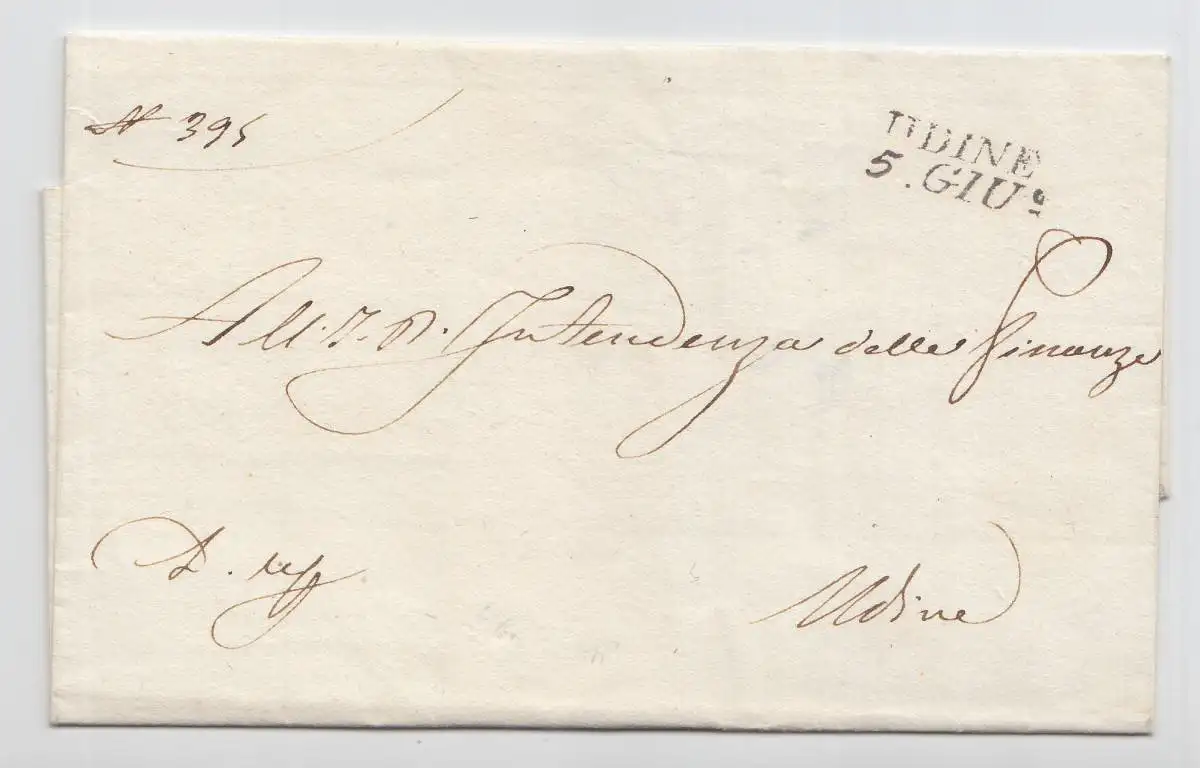 N 395
UDINE
5. GIUº
All' I. R. Intendenza delle Finanze
Udine